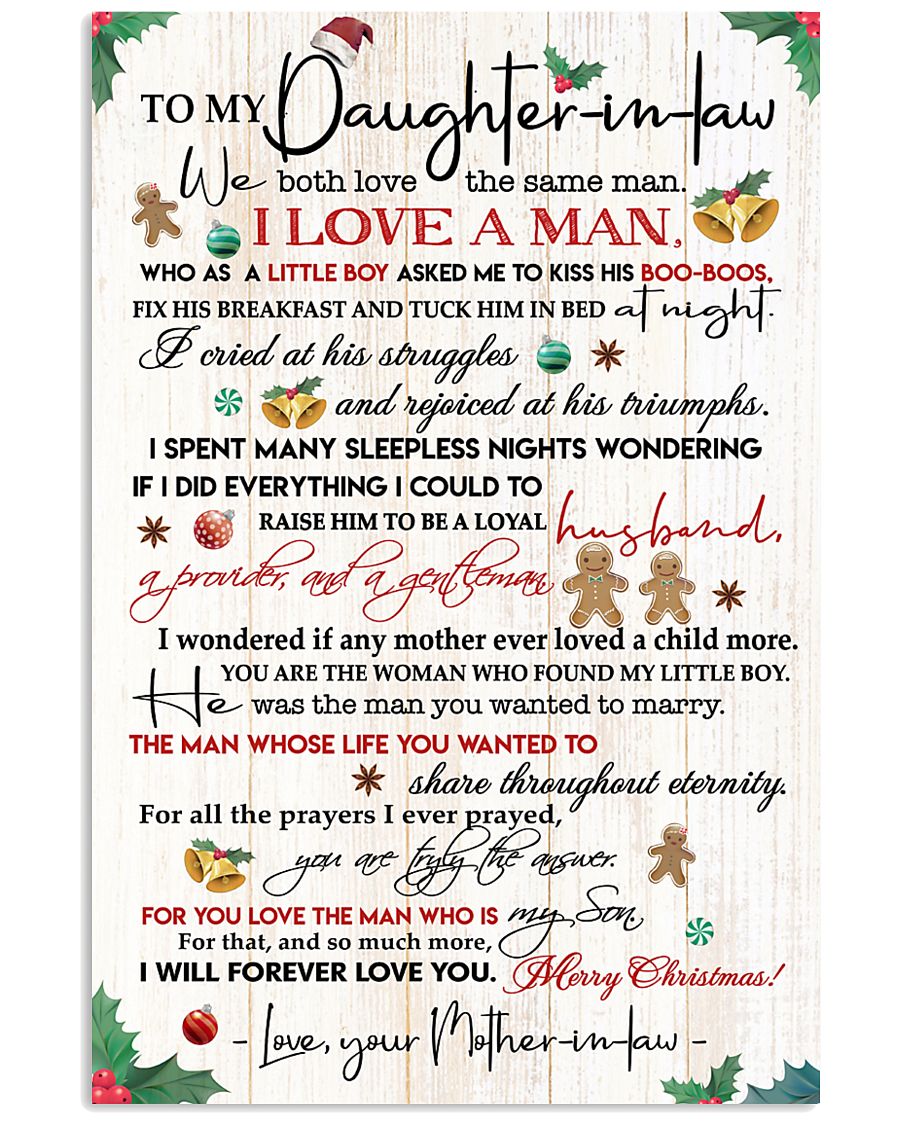 TO MY Daughter-in-law
We both love the same man.
I LOVE A MAN,
WHO AS A LITTLE BOY ASKED ME TO KISS HIS BOO-BOOS,
FIX HIS BREAKFAST AND TUCK HIM IN BED at night.
I cried at his struggles
and rejoiced at his triumphs.
I SPENT MANY SLEEPLESS NIGHTS WONDERING
IF I DID EVERYTHING I COULD TO
RAISE HIM TO BE A LOYAL husband,
a provider, and a gentleman,
I wondered if any mother ever loved a child more.
YOU ARE THE WOMAN WHO FOUND MY LITTLE BOY.
He was the man you wanted to marry.
THE MAN WHOSE LIFE YOU WANTED TO
share throughout eternity.
For all the prayers I ever prayed,
you are tryly the answer.
FOR YOU LOVE THE MAN WHO IS my Son.
For that, and so much more,
I WILL FOREVER LOVE YOU. Merry Christmas!
- Love, your Mother-in-law -